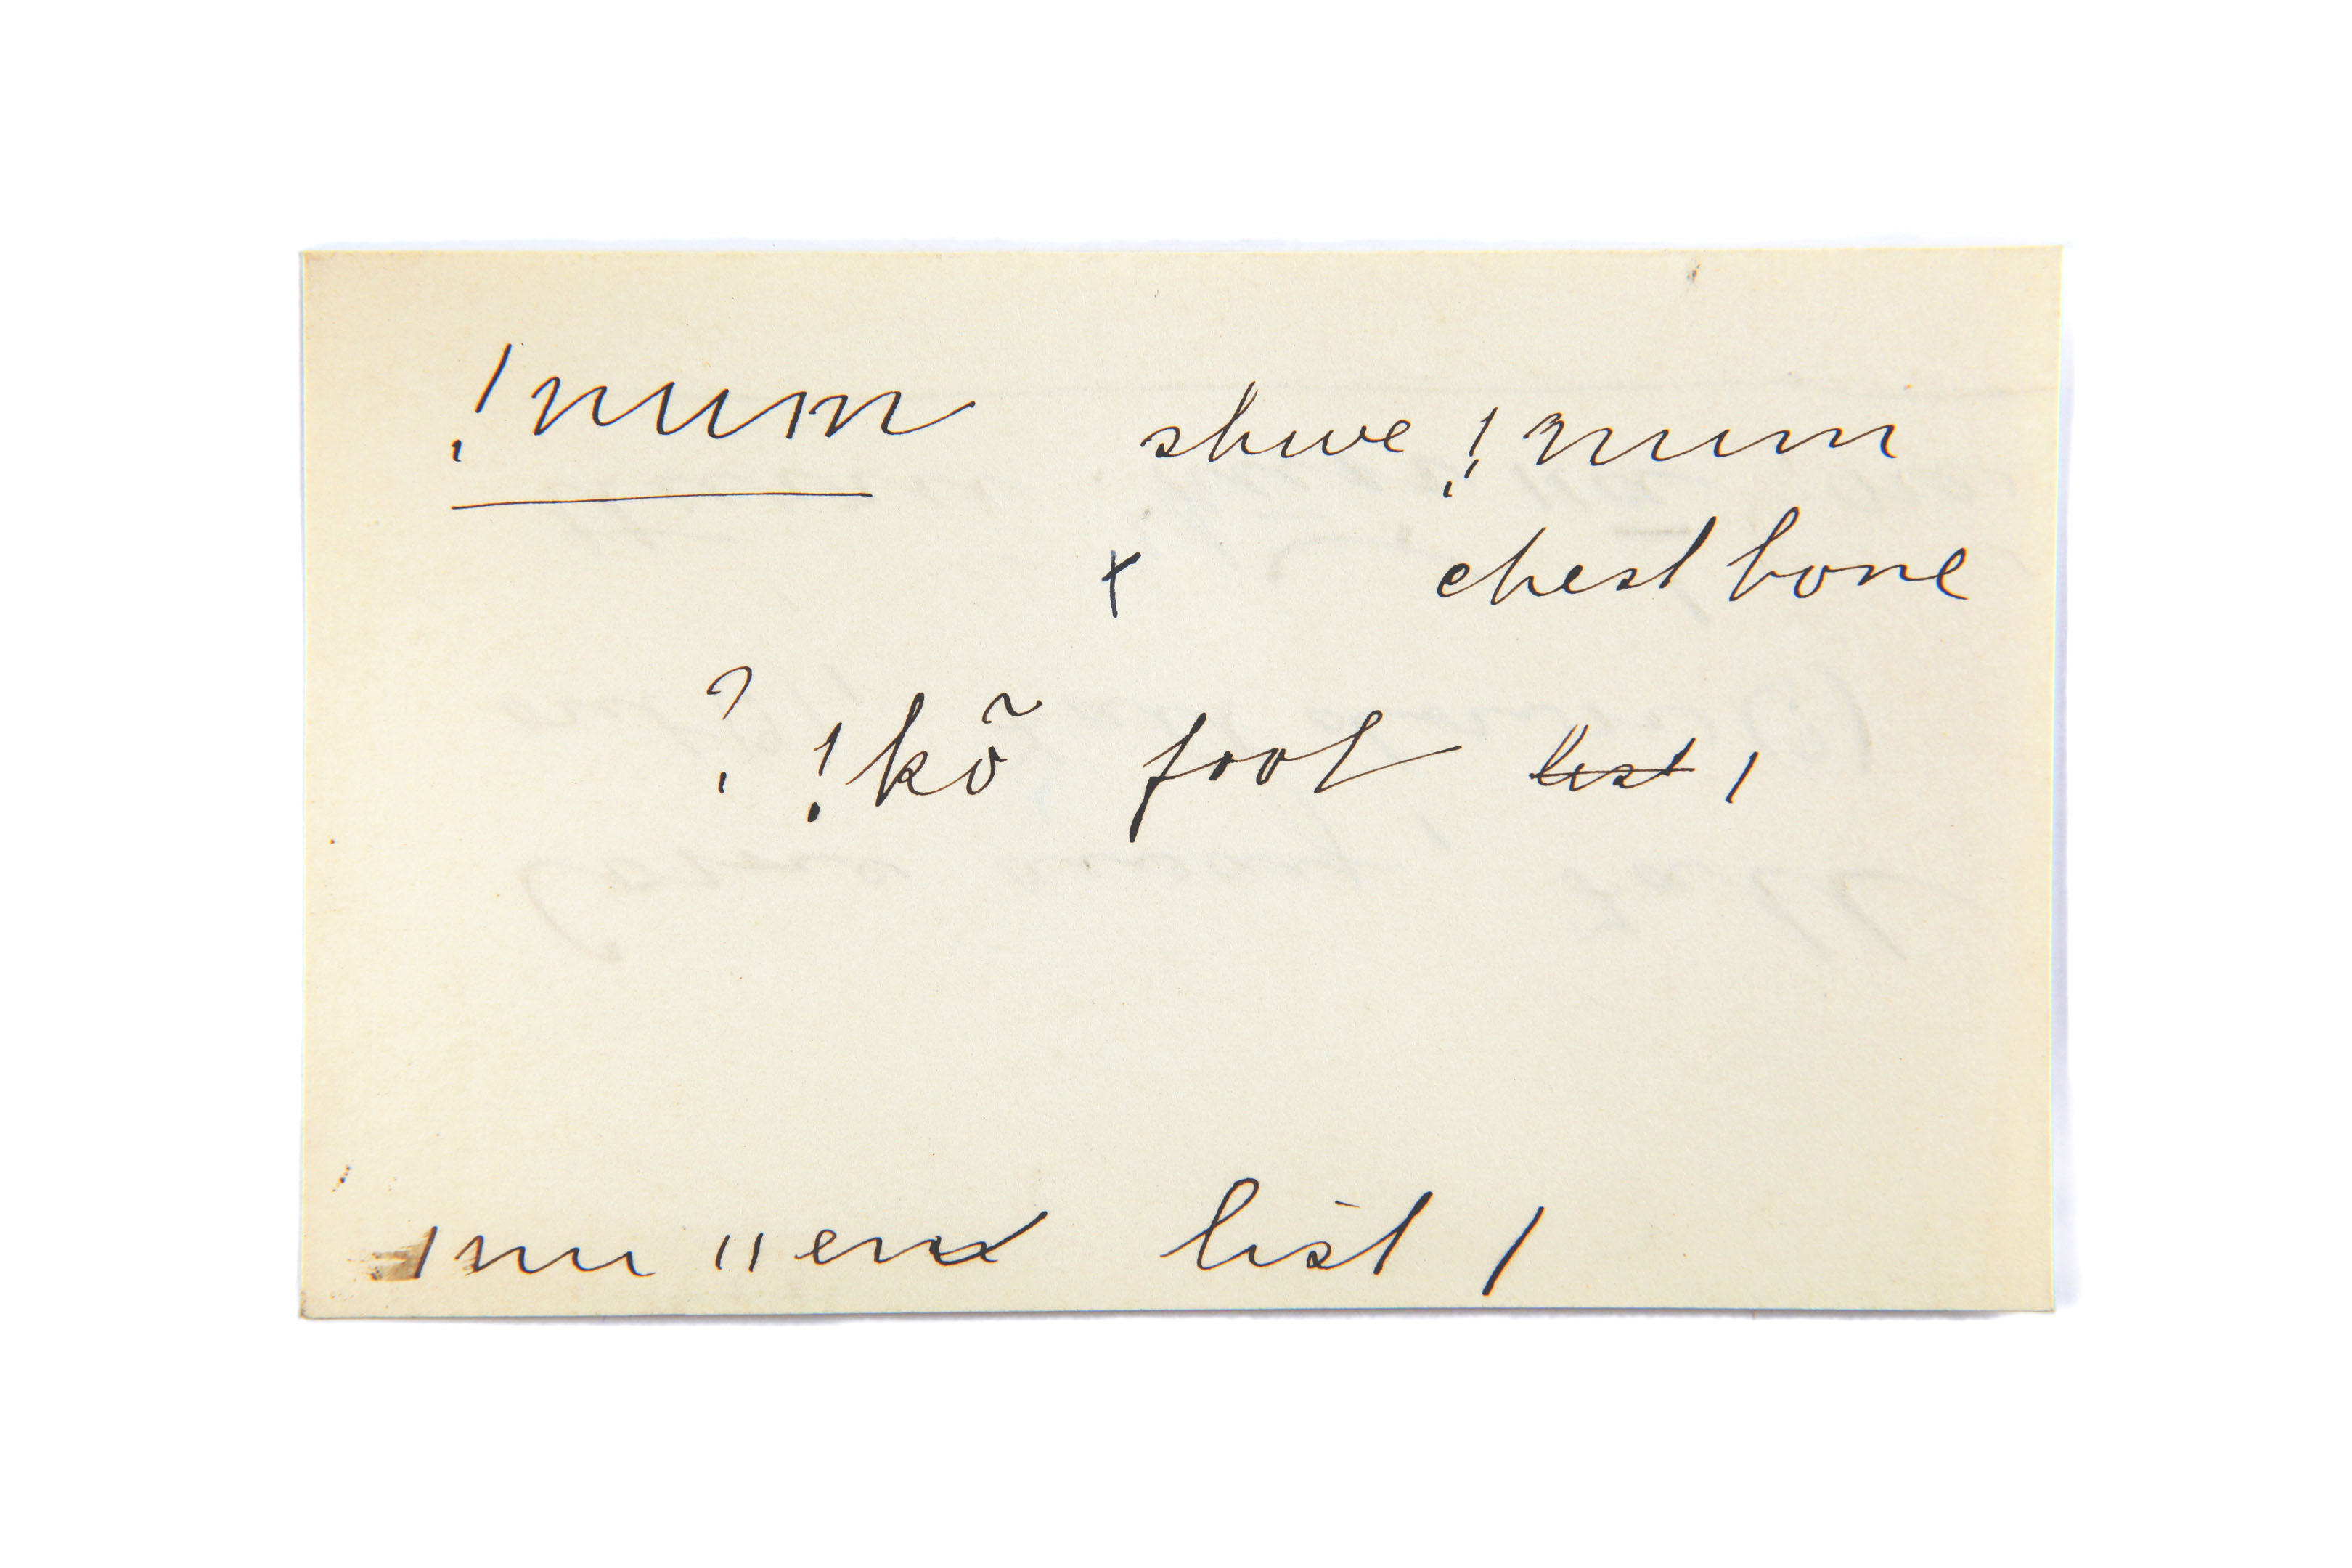 !num shwe !num
x chest bone
? !kõ foot list 1
ǀnu ǁen list 1